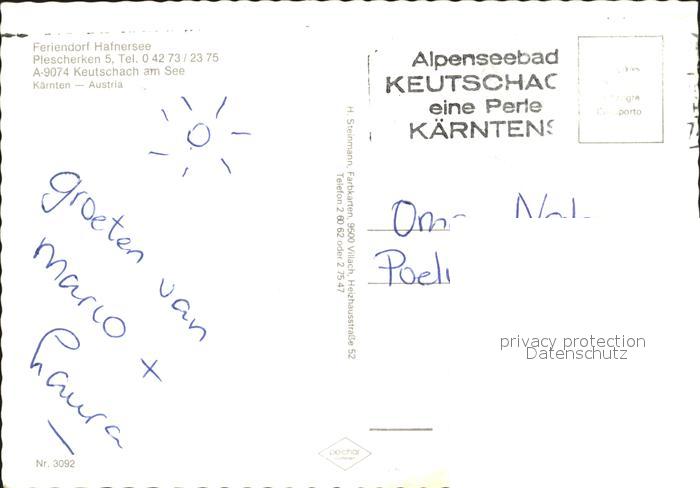 Feriendorf Hafnersee
Plescherken 5, Tel. 0 42 73 / 23 75
A-9074 Keutschach am See
Kärnten — Austria
groeten van
Marco x
Laura
Nr. 3092
H. Steinmann, Farbkarten, 9500 Villach, Heizhausstraße 52
Telefon 2 60 62 oder 2 75 47
Alpenseebad
KEUTSCHAC
eine Perle
KÄRNTENS
privacy protection
Datenschutz